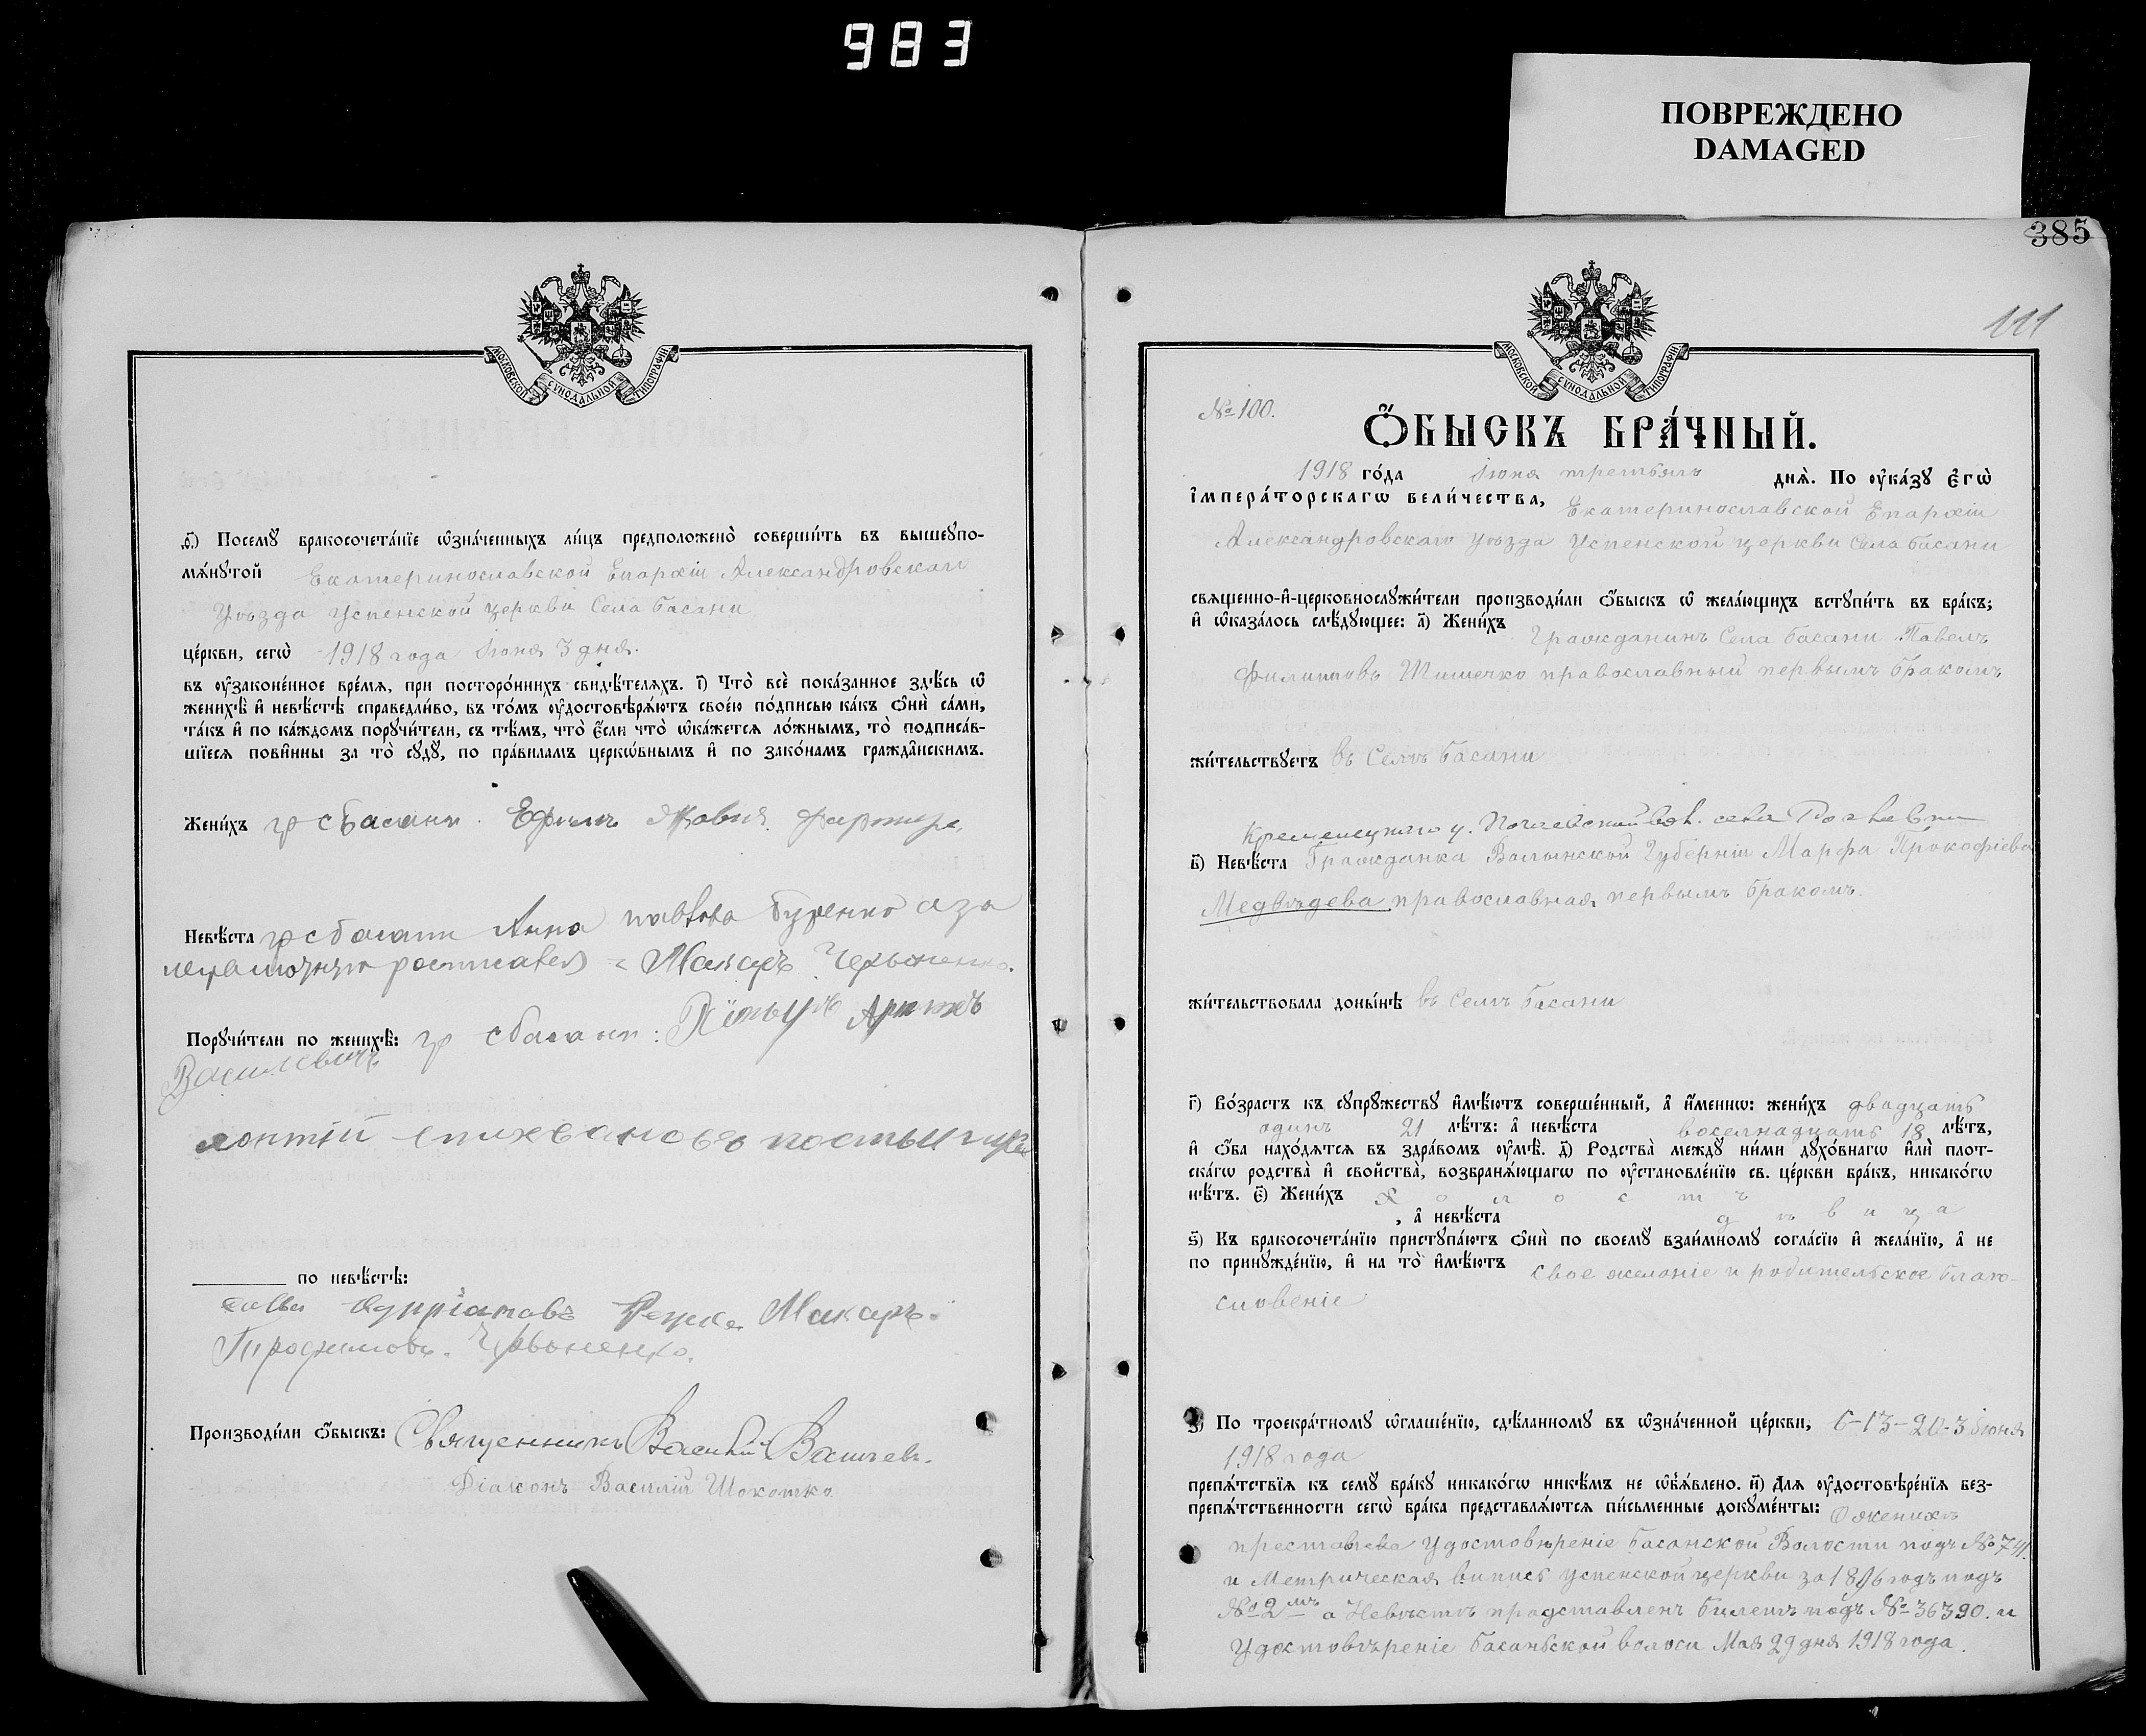 983
ПОВРЕЖДЕНО
DAMAGED
МОСКОВСКОЙ СѴНОДАЛЬНОЙ ТИПОГРАФІИ
Посемꙋ̀ бракосочета́нїе ѡ҆зна́ченныхъ ли́цъ предположено̀ соверши́ть въ вышеꙋпо-
мѧ́нꙋтой Екатеринославской Епархіи Александровскаго
Уѣзда Успенской церкви Села Басани
це́ркви, сегѡ̀ 1918 года Іюня 3 дня.
въ ᲂу҆зако́ненное вре́мѧ, при посторо́ннихъ свидѣ́телѧхъ. і҃) Что̀ всѐ пока́занное здѣ́сь ѡ҆
женихѣ̀ и҆ невѣ́стѣ справедли́во, въ то́мъ ᲂу҆достовѣрѧ́ютъ свое́ю по́дписью ка́къ ѻ҆нѝ са́ми,
та́къ и҆ по ка́ждомъ порꙋчи́тели, съ тѣ́мъ, что̀ є҆́сли что̀ ѡ҆ка́жетсѧ ло́жнымъ, то̀ подписа́в-
шїесѧ пови́нны за то̀ сꙋдꙋ̀, по пра́виламъ церко́внымъ и҆ по зако́намъ гражда́нскимъ.
Жени́хъ гр с Басани Ефимъ
Невѣ́ста гр с басани Анна павлова буренко а за
неграмотную росписавея Макаръ Червоненко.
Порꙋчи́тели по женихѣ̀: гр с басани:
Василевичъ
по невѣ́стѣ:
Макаръ
Трофимовъ. Червоненко.
Производи́ли ѻ҆́быскъ: Священникъ Василій
Діаконъ Василій Шокотко
385
111
МОСКОВСКОЙ СѴНОДАЛЬНОЙ ТИПОГРАФІИ
№ 100.
Ѻ҆́БЫСКЪ БРА́ЧНЫЙ.
1918 го́да Іюня третьяго днѧ̀. По ᲂу҆ка́зꙋ Є҆гѡ̀
І҆мпера́торскагѡ вели́чества, Екатеринославской Епархіи
Александровскаго Уѣзда Успенской церкви села Басани
свѧще́нно-и҆-церковнослꙋжи́тели производи́ли ѻ҆́быскъ ѡ҆ жела́ющихъ встꙋпи́ть въ бра́къ;
и҆ ѡ҆каза́лось слѣ́дꙋющее: а҃) Жени́хъ Гражданинъ Села Басани Павелъ
Филиповъ Тишечко православный первымъ бракомъ
жи́тельствꙋетъ въ Селѣ Басани
Кременецкаго у. Почаевской вол. села
в҃) Невѣ́ста Гражданка Волынской Губерніи Марфа Прокофіева
Медвѣдева православная первымъ бракомъ.
жи́тельствовала доны́нѣ въ Селѣ Басани
г҃) Во́зрастъ къ сꙋпрꙋ́жествꙋ и҆мѣ́ютъ соверше́нный, а҆ и҆́меннѡ: жени́хъ двадцать
одинъ 21 лѣ́тъ: а҆ невѣ́ста восемнадцать 18 лѣ́тъ,
и҆ ѻ҆́ба нахо́дѧтсѧ въ здра́вомъ ᲂу҆мѣ̀. д҃) Родства̀ междꙋ ни́ми дꙋхо́внагѡ и҆лѝ плот-
ска́гѡ родства̀ и҆ свойства̀, возбранѧ́ющагѡ по ᲂу҆становле́нїю св. це́ркви бра́къ, никако́гѡ
нѣ́тъ. є҃) Жени́хъ Х о л о с т ъ
, а҆ невѣ́ста д ѣ в и ц а
ѕ҃) Къ бракосочета́нїю пристꙋпа́ютъ ѻ҆нѝ по своемꙋ̀ взаи́мномꙋ согла́сїю и҆ жела́нїю, а҆ не
по принꙋжде́нїю, и҆ на то̀ и҆мѣ́ютъ свое желаніе и родительское благо-
словеніе
з҃) По троекра́тномꙋ ѡ҆глаше́нїю, сдѣ́ланномꙋ въ ѡ҆зна́ченной це́ркви, 6-13-20-3 Іюня
1918 года
препѧ́тствїѧ къ семꙋ̀ бра́кꙋ никако́гѡ никѣ́мъ не ѡ҆б̾ѧ́влено. и҃) Длѧ ᲂу҆достовѣре́нїѧ без-
препѧ́тственности сегѡ̀ бра́ка представлѧ́ютсѧ пи́сьменные докꙋме́нты: О женихѣ
преставлена удостовѣреніе Басанской Волости подъ № 741
и Метрическая выпись успенской церкви за 1896 годъ подъ
№ 2 мъ а Невѣстѣ представленъ билетъ подъ № 36390. и
Удостовѣреніе Басаньской волоси Мая 29 дня 1918 года.